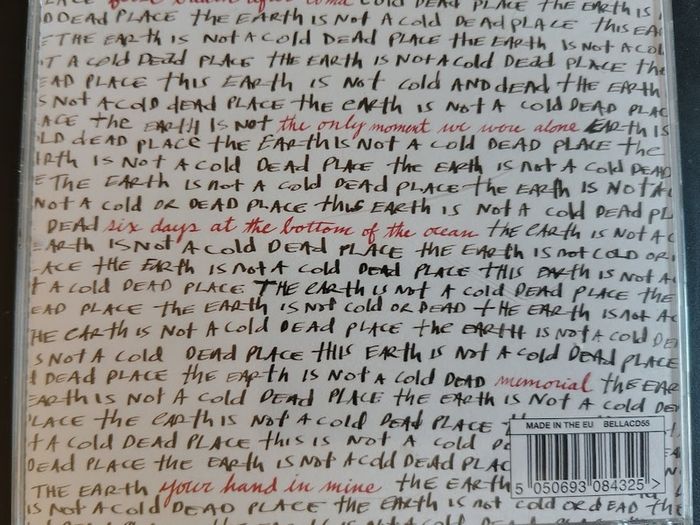 PLACE first breath after coma cold DEAD PLACE the EARTH IS
DEAD PLACE the EARTH IS Not A cold DEAD PLACE this EA
E THE EARTH IS Not A cold DEAD PLACE the EARTH IS Not A COL
T A cold DEAD PLACE THE EARTH IS NOT A cold DEAD PLACE the
EAD PLACE this EARTH IS Not cold AND dEAd tHE EARTH
S Not A cold dEAd PLACE the EARTH IS Not A cold DEAD PLAC
ACE the EARTH IS NOT the only moment we were alone EARTH IS
LD dEAD PLACE the EARTH IS NOT A cold DEAD PLACE the
RTH IS Not A cold DEAD PLACE the EARTH IS not A cold DEAD
E THE EARTH IS not A cold DEAd PLACE the EARTH IS NOt A
NOT A cold OR DEAD PLACE this EARTH IS Not A cold DEAd PL
DEAd six days at the bottom of the ocean the EARTH IS Not A C
EARTH IS NOT A cold DEAd PLACE the EARTH IS not COLD OR
LACE tHE EARTH IS not A cold DEAD PLACE THIS EARTH IS Not A
t A cold DEAD PLACE THE EARTH IS not A cold DEAd PLACE the
EAD PLACE the EARTH IS Not cold OR DEAD tHE EARTH IS not A
HE EARTH IS Not A cold DEAd PLACE the EARTH IS not A cold DE
S Not A cold DEAD PLACE tHIS EARTH IS Not A cold DEAd PLACE
DEAd PLACE the EARTH IS Not A cold DEAD memorial the EAR
EARTH IS Not A cold DEAD PLACE the EARTH IS not A cold DEA
LACE the EARTH IS Not A cold DEAd PLACE
t A cold DEAD PLACE this IS Not A cold
DEAd PLACE the EARTH IS Not A cold DEAd PLAC
THE EARTH your hand in mine the EARTH
IS Not A cold DEAd PLACE the EARTH IS not cold OR dEAD
MADE IN THE EU BELLACD55
5 050693 084325 >